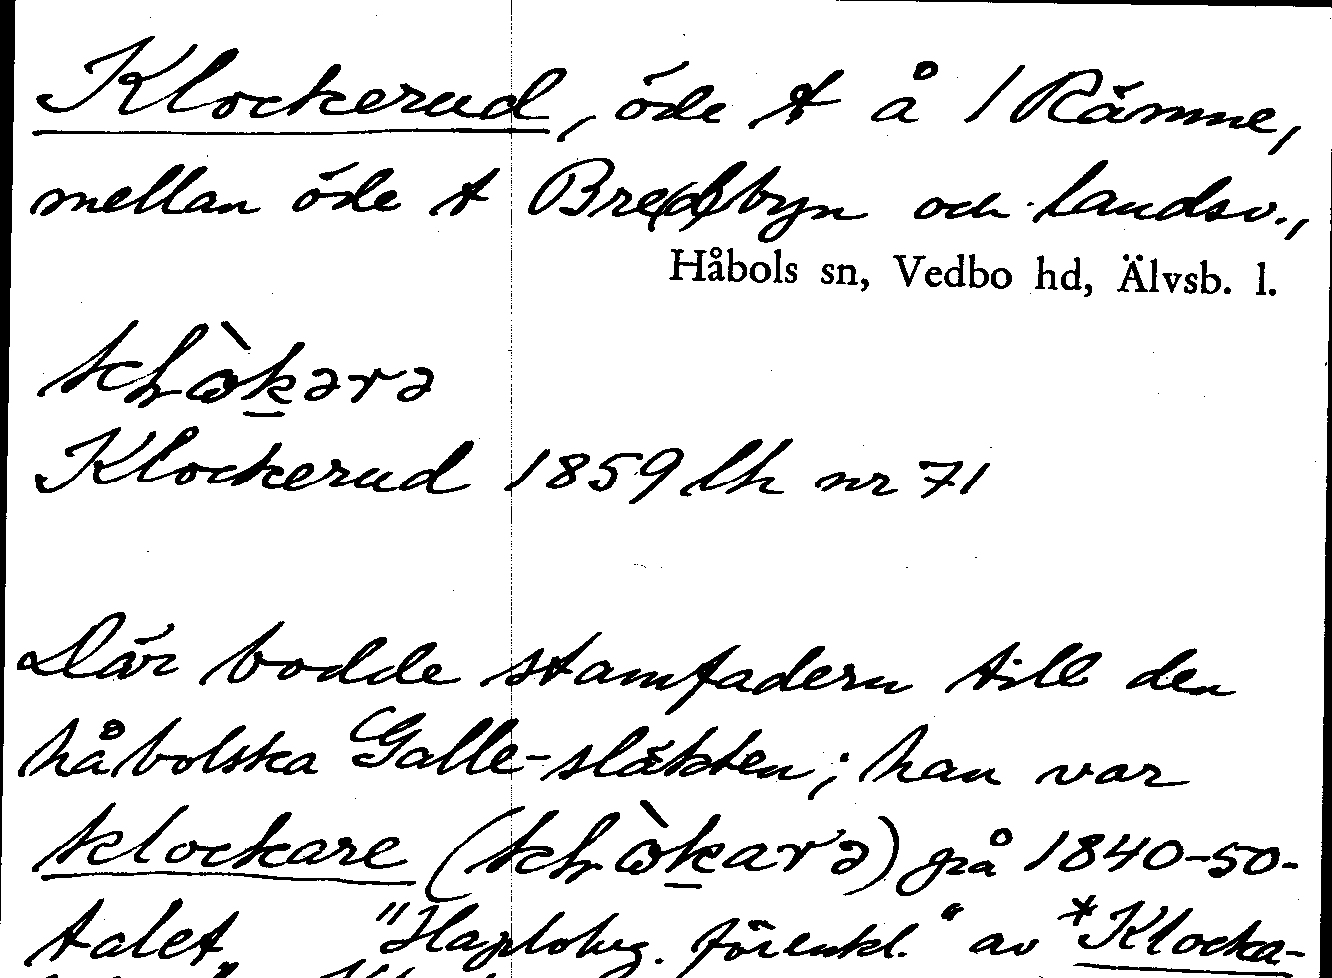 Klockerud, öde t å 1 Rämne,
mellan öde t Bre(d)byn och landsv.,
Håbols sn, Vedbo hd, Älvsb. l.
Klockerud 1859 lh nr 71
Där bodde stamfadern till den
håbolska Galle-släkten; han var
klockare på 1840-50-
talet "Haplolog. förenkl." av *Klocka-